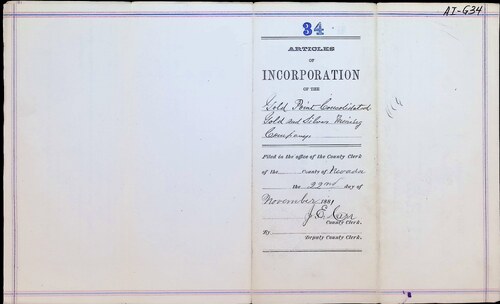 AI-G34
34
ARTICLES
OF
INCORPORATION
OF THE
Gold Point Consolidated
Gold and Silver Mining
Company
Filed in the office of the County Clerk
of the County of Nevada
the 22nd day of
November 1881
J. E. Carr
County Clerk.
By
Deputy County Clerk.